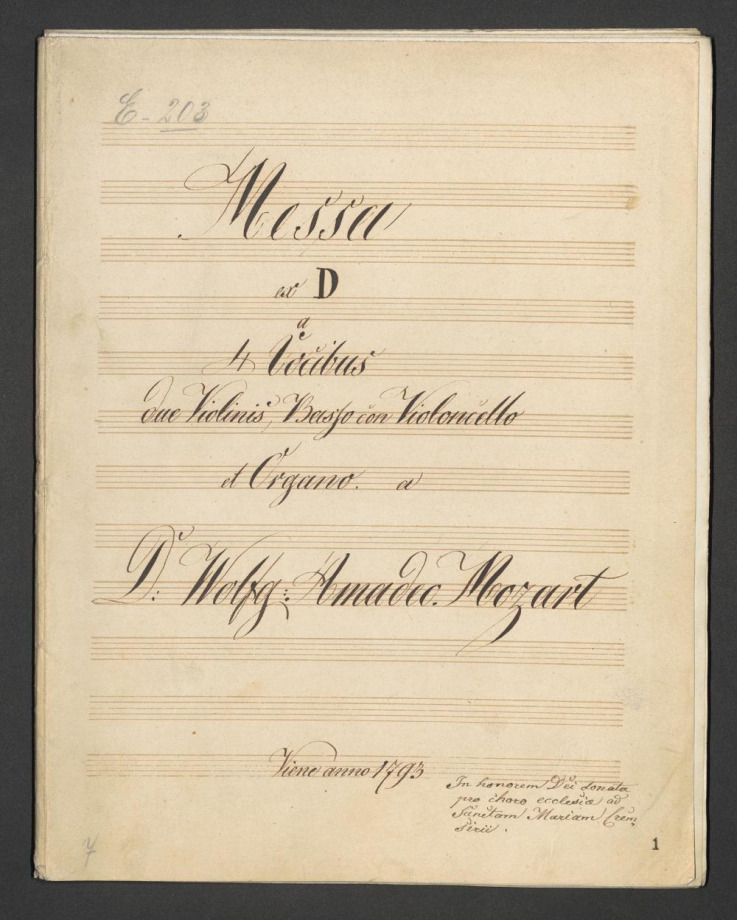 E - 203
Messa
ex D
a
4 Vocibus
due Violinis, Basso con Violoncello
et Organo. a
D: Wolfg: Amadeo. Mozart
Viene anno 1793
In honorem Dei donata
pro choro ecclesiæ ad
Sanctam Mariam Crem
sirii.
1